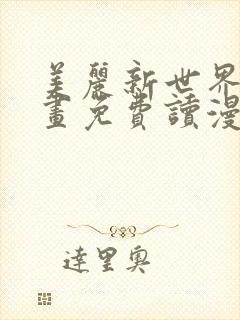 美麗新世界
畫免費讀漫
達里奧